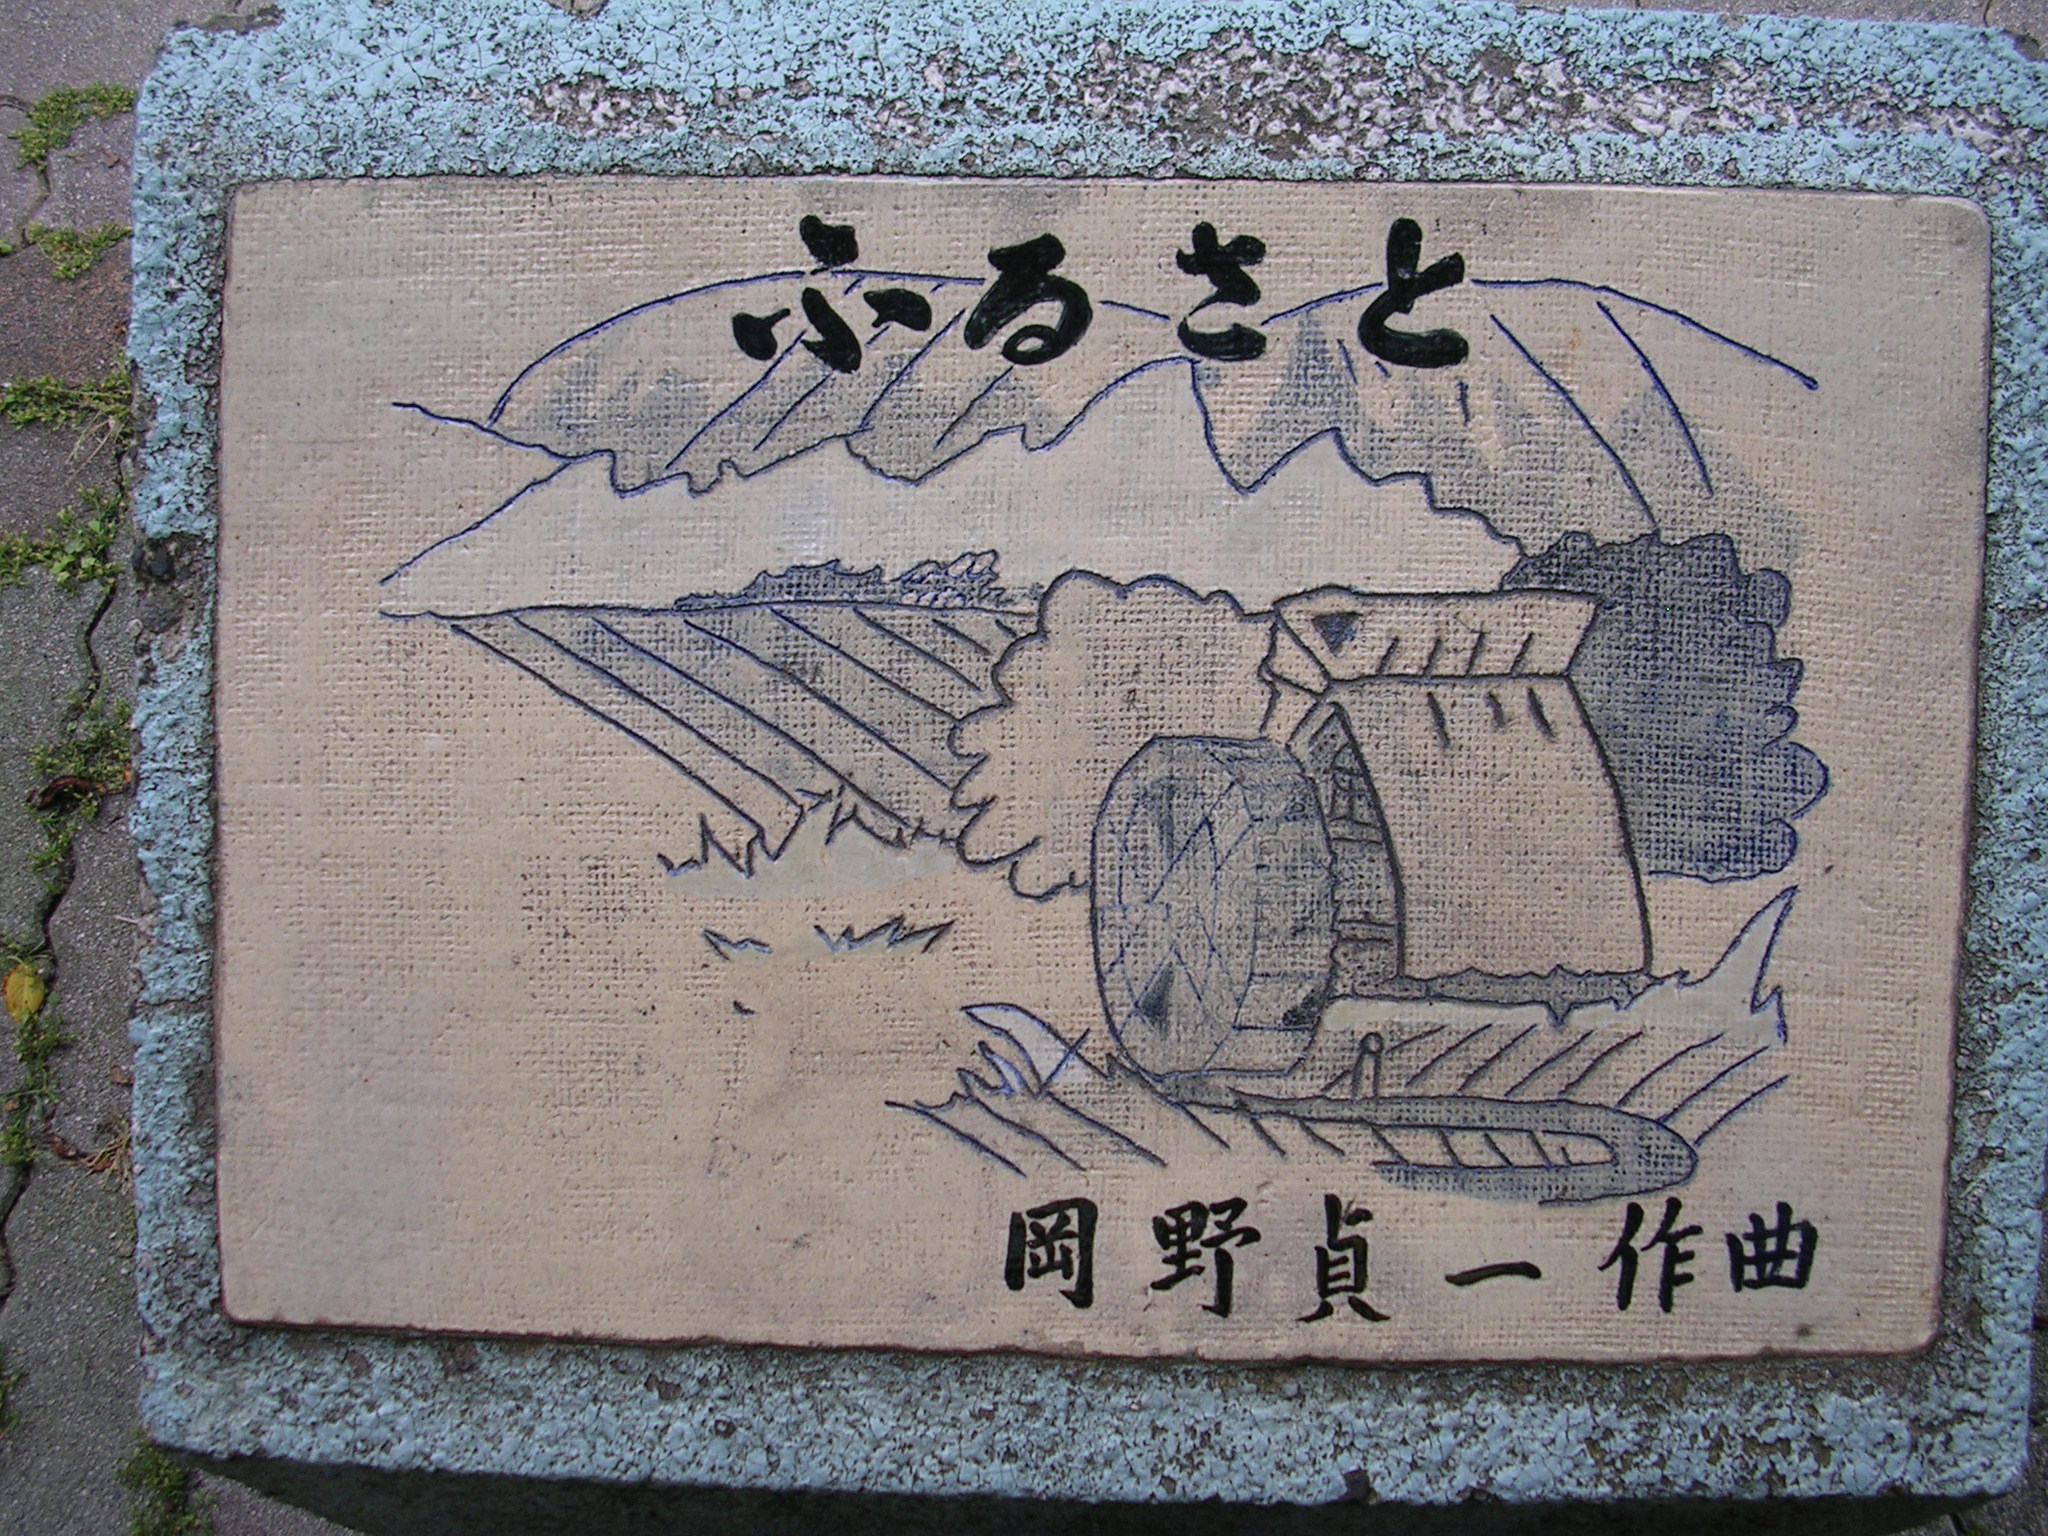 ふるさと
岡野貞一 作曲